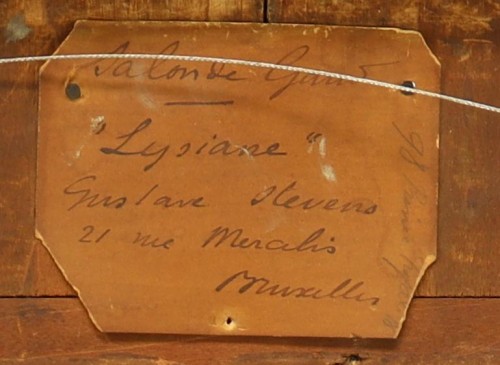 Salon de Gand
"Lysiane"
Gustave Stevens
21 rue Mercelis
Bruxelles
98